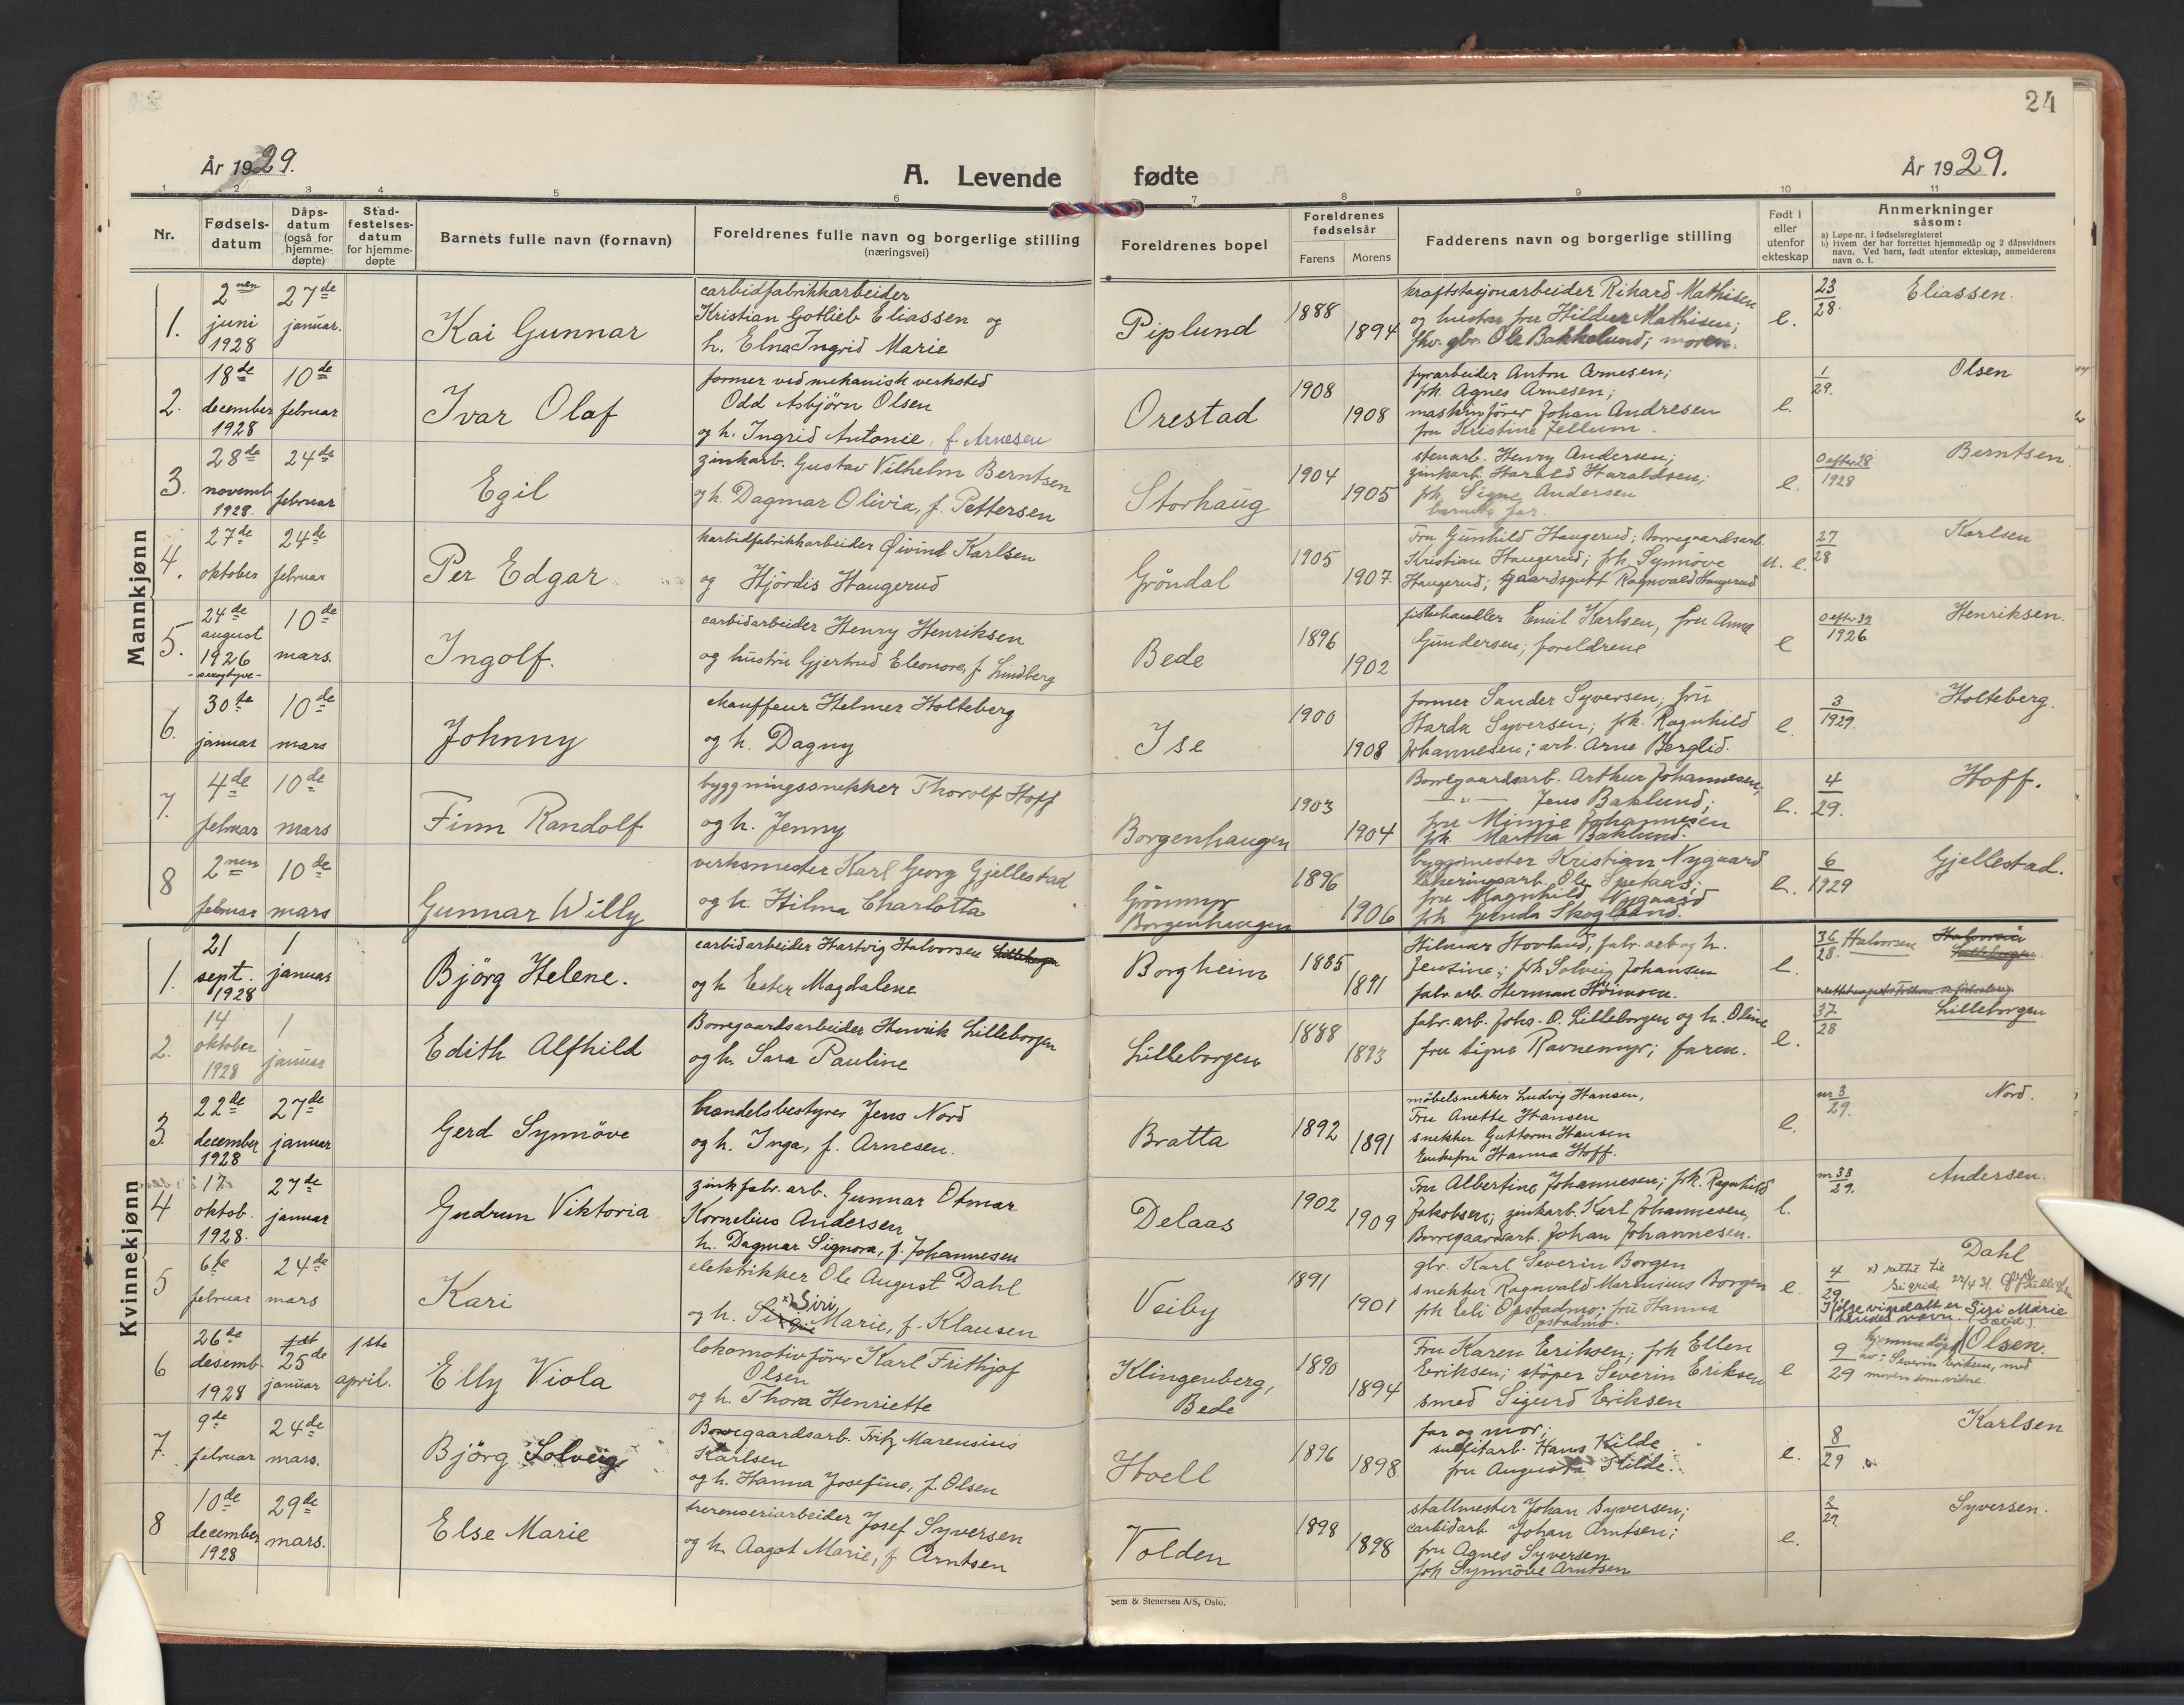 24
År 1929.
A. Levende fødte
År 1929.
1 2 3 4 5 6 7 8 9 10 11
Nr.
Fødsels-
datum
Dåps-
datum
(også for
hjemme-
døpte)
Stad-
festelses-
datum
for hjemme-
døpte
Barnets fulle navn (fornavn)
Foreldrenes fulle navn og borgerlige stilling
(næringsvei)
Foreldrenes bopel
Foreldrenes
fødselsår
Farens Morens
Fadderens navn og borgerlige stilling
Født i
eller
utenfor
ekteskap
Anmerkninger
såsom:
a) Løpe-nr. i fødselsregisteret
b) Hvem der har forrettet hjemmedåp og 2 dåpsvidners
navn. Ved barn, født utenfor ekteskap, anmelderens
navn o. l.
Mannkjønn
1.
2nen
juni
1928
27de
januar.
Kai Gunnar
carbidfabrikkarbeider
Kristian Gotlieb Eliassen og
h. Elna Ingrid Marie
Piplund
1888
1894
kraftstasjonarbeider Rikard Mathisen
og hustru fru Hildur Mathisen;
fhv. gbr. Ole Bakkelund; moren.
e.
23
28.
Eliassen.
2.
18de
december
1928
10de
februar
Ivar Olaf
former ved mekanisk verksted
Odd Asbjörn Olsen
og h. Ingrid Antonie, f. Arnesen
Orestad
1908
1908
fyrarbeider Anton Arnesen;
frk. Agnes Arnesen;
maskinförer Johan Andresen
fru Kristine Jellum.
e.
1
29.
Olsen
3.
28de
novemb.
1928.
24de
februar
Egil
zinkarb. Gustav Vilhelm Berntsen
og h. Dagmar Olivia, f. Pettersen
Storhaug
1904
1905
stenarb. Henry Andersen;
zinkarb. Harald Haraldsen;
frk. Signe Andersen
barnets far.
e.
0 efter 28
1928
Berntsen.
4.
27de
oktober
24de
februar
Per Edgar
karbidfabrikkarbeider Øivind Karlsen
og Hjördis Haugerud
Gröndal
1905
1907.
Fru Gunhild Haugerud; Borregaardsarb.
Kristian Haugerud; frk. Synnöve
Haugerud; gaardsgutt Ragnvald Haugerud
u. e.
27
28
Karlsen
5.
24de
august
1926
-sexogtyve-
10de
mars.
Ingolf.
carbidarbeider Henry Henriksen
og hustru Gjertrud Eleonore, f. Lindberg
Bede
1896
1902
fiskehandler Emil Karlsen, fru Anna
Gundersen; foreldrene
e
0 efter 32
1926
Henriksen.
6.
30te
januar
10de
mars
Johnny
chauffeur Helmer Holteberg
og h. Dagny
Ise
1900
1908
former Sander Syversen; fru
Harda Syversen; frk. Ragnhild
Johannesen; arb. Arne Berglid.
e.
3
1929.
Holteberg.
7.
4de
februar
10de
mars
Finn Randolf
byggningssnekker Thorolf Hoff
og h. Jenny
Borgenhaugen
1903
1904
Borregaardsarb. Arthur Johannesen,
— " — Jens Baklund;
fru Minnie Johannesen
frk. Martha Baklund.
e.
4
29.
Hoff.
8
2nen
februar
10de
mars
Gunnar Willy
verksmester Karl Georg Gjellestad
og h. Hilma Charlotta
Grönmyr
Borgenhaugen
1896
1906
byggmester Kristian Nygaard
Ole Spetaas;
fru Magnhild Nygaard
frk Gunda Skogland.
e.
6
1929
Gjellestad.
Kvinnekjønn
1.
21
sept.
1928
1
januar
Björg Helene.
carbidarbeider Hartvig Halvorsen Lilleborgen
og h Ester Magdalene
Borgheim
1885
1891
Hilmar Hovland, fabr. arb og h.
Jensine; frk Solveig Johansen
fabr. arb. Herman
e.
36
28.
Halvorsen
Halvorsen
Lilleborgen.
2.
14
oktober
1928
1
januar
Edith Alfhild
Borregaardsarbeider Henrik Lilleborgen
og h. Sara Pauline
Lilleborgen
1888
1893
fabr. arb. Johs. O. Lilleborgen og h. Oline
fru Signe Ravnemyr; faren.
e.
37
28
Lilleborgen
3.
22de
december
1928
27de
januar
Gerd Synnöve
handelsbestyrer Jens Nord
og h. Inga, f. Arnesen.
Bratta
1892
1891
möbelsnekker Ludvig Hansen,
Fru Anette Hansen
snekker Guttorm Hansen
Enkefru Hanna Hoff.
e.
nr 3
29.
Nord.
4
17
oktob.
1928.
27de
januar
Gudrun Viktoria
zinkfabr. arb. Gunnar Otmar
Kornelius Andersen
h. Dagmar Signora, f. Johannesen
Delaas
1902
1909
Fru Albertine Johannesen; frk. Ragnhild
Jakobsen; zinkarb. Karl Johannesen,
Borregaardsarb. Johan Johannesen.
e.
nr 33
29.
Andersen.
5
6te
februar
24de
mars
Kari
elektrikker Ole August Dahl
x) Siri
og h. Marie, f. Klausen
Veiby
1891
1901
gbr. Karl Severin Borgen
snekker Ragnvald Marensius Borgen
frk Eli Opstadmo; fru Hanna
Opstadmo.
e.
4
29
Dahl
x) rettet til
Sigrid, 22/4 31
Ifölge vigselatt er Siri Marie
hendes navn.
6
26de
desemb.
1928
1st
25de
januar
1ste
april.
Elly Viola
lokomotivförer Karl Frithjof
Olsen
og h. Thora Henriette
Klingenberg,
Bede
1890
1894
Fru Karen Eriksen; frk Ellen
Eriksen; stöper Severin Eriksen
smed Sigurd Eriksen
e
9
29
hjemmedöpt Olsen.
av: Severin Eriksen, med
moren som vidne.
7.
9de
februar
24de
mars.
Björg Solveig
Borregaardsarb. Fritz Marensius
Karlsen
og h. Hanna Josefine, f. Olsen
Hoell
1896
1898
far og mor;
sulfitarb. Hans Kilde
fru Augusta Kilde.
e.
8
29
Karlsen
8
10de
december
1928
29de
mars.
Else Marie
trerenseriarbeider Josef Syversen
og h. Aagot Marie, f. Arntsen
Volden
1898
1898
stallmester Johan Syversen;
carbidarb. Johan Arntsen;
fru Agnes Syversen
frk Synnöve Arntsen
e.
2
29
Syversen.
Sem & Stenersen A/S, Oslo.